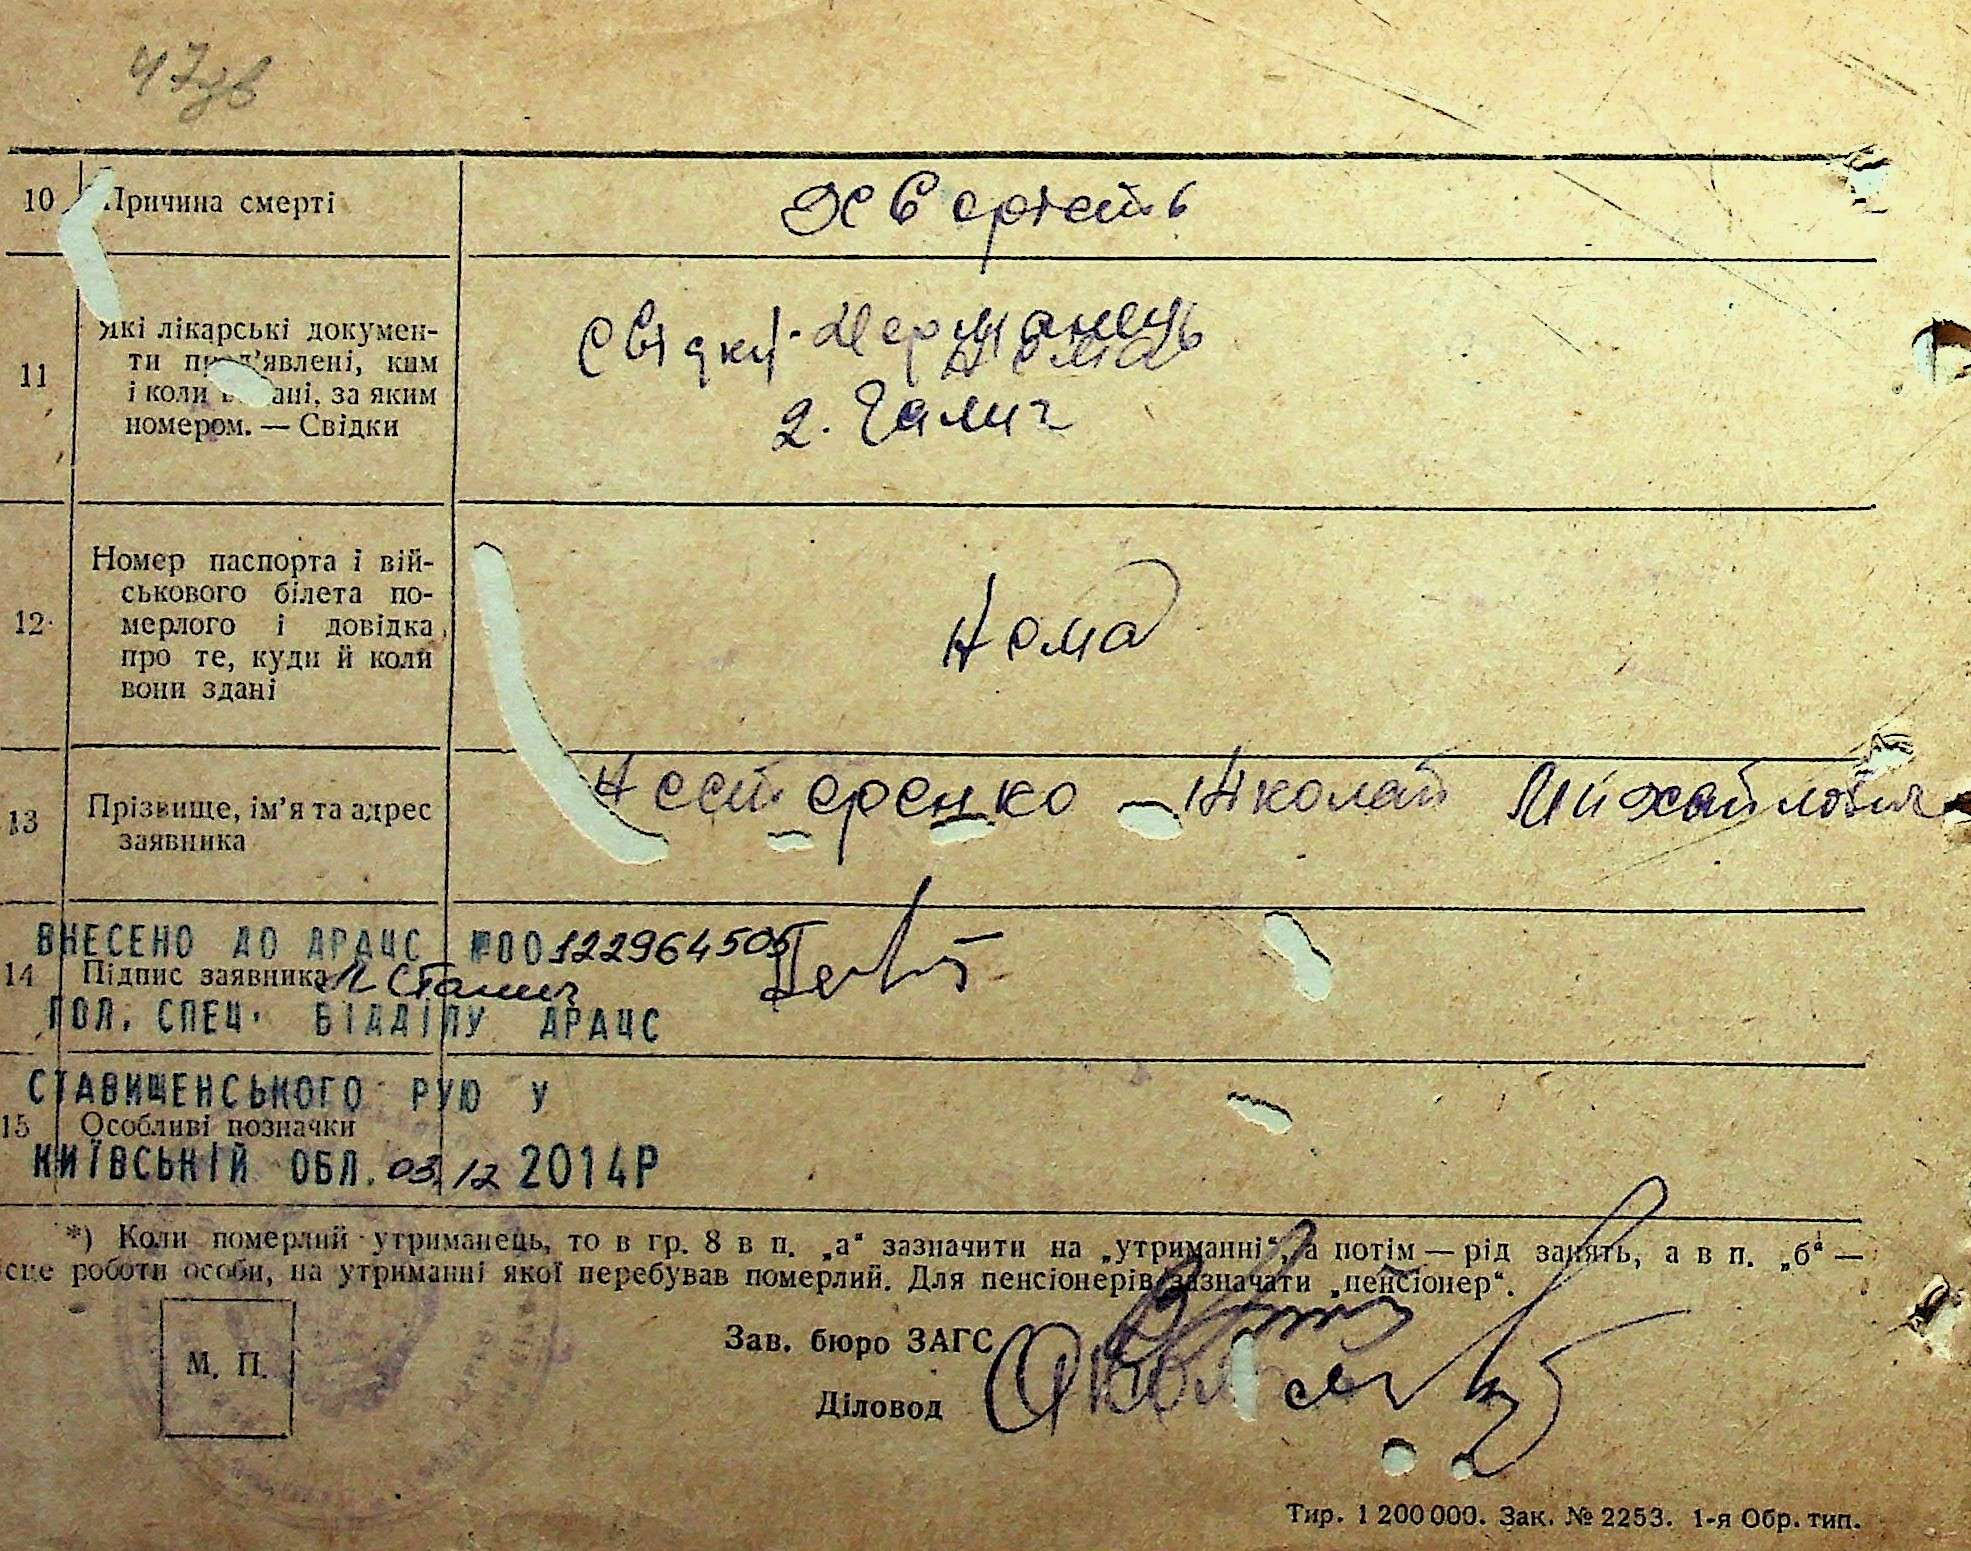 47зв
10 Причина смерті
Хворість
11 Які лікарські докумен-
ти пред'явлені, ким
і коли видані, за яким
номером. — Свідки
Свідки
2. Галич
12 Номер паспорта і вій-
ськового білета по-
мерлого і довідка
про те, куди й коли
вони здані
Нема
13 Прізвище, ім'я та адрес
заявника
Нестеренко Николай Михайлович
ВНЕСЕНО ДО ДРАЦС №00122964505
14 Підпис заявника
ГОЛ. СПЕЦ. ВІДДІЛУ ДРАЦС
СТАВИЩЕНСЬКОГО РУЮ У
15 Особливі позначки
КИЇВСЬКІЙ ОБЛ. 03.12 2014Р
*) Коли померлий утриманець, то в гр. 8 в п. „а“ зазначити на „утриманні“, а потім — рід занять, а в п. „б“ —
ісце роботи особи, на утриманні якої перебував померлий. Для пенсіонерів зазначати „пенсіонер“.
М. П.
Зав. бюро ЗАГС
Діловод
Тир. 1 200 000. Зак. № 2253. 1-я Обр. тип.